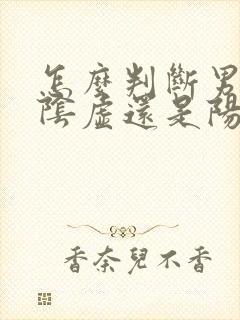 怎麼判斷男
陰虛還是陽
香奈兒不香